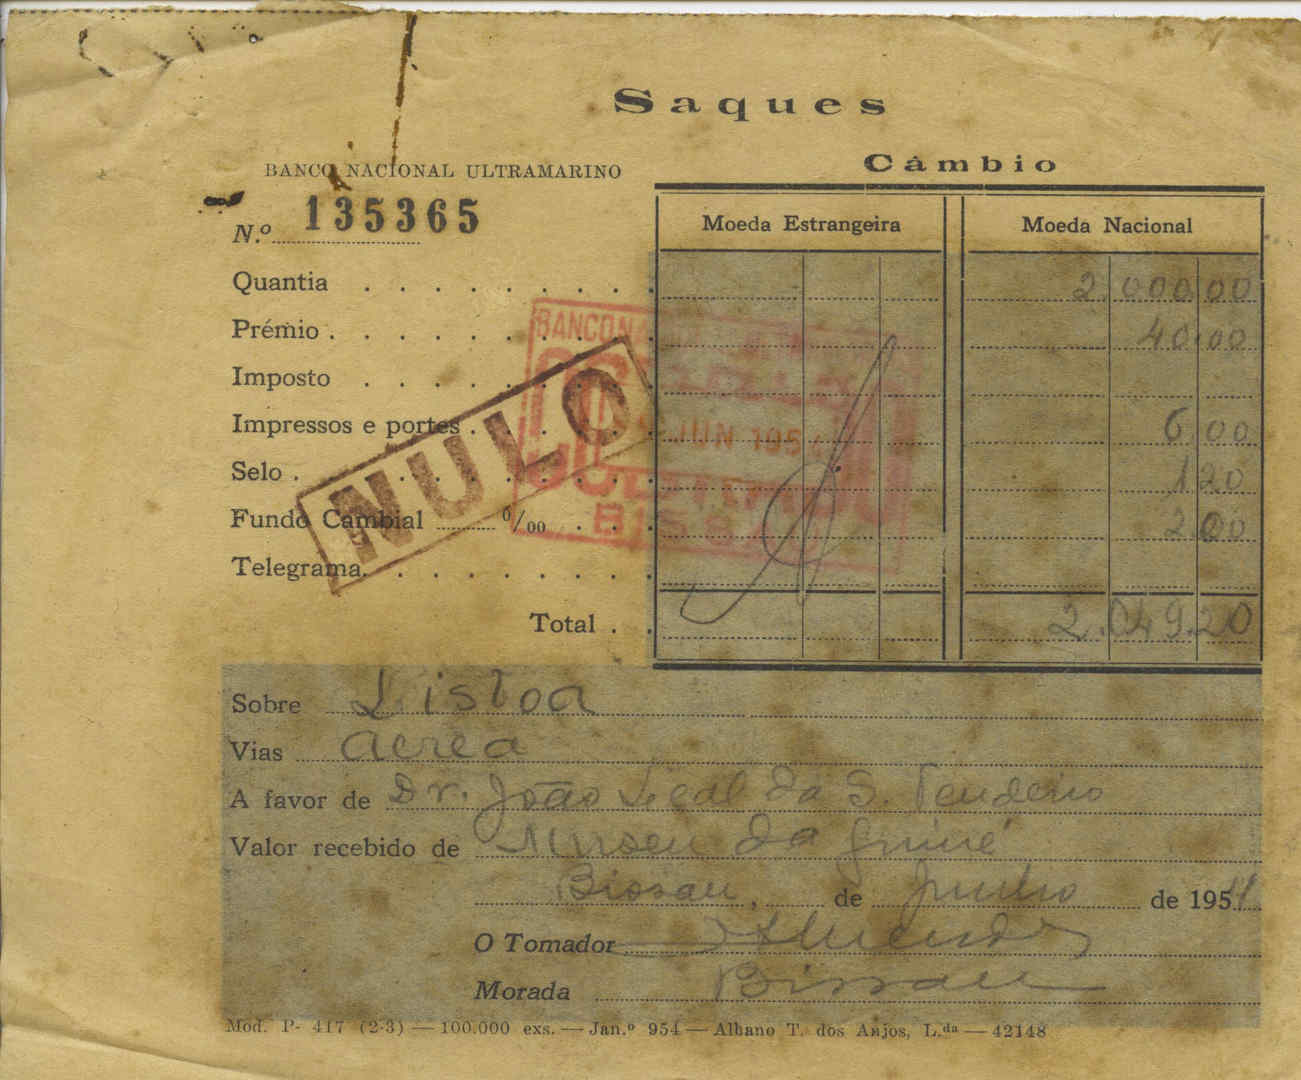 Saques
BANCO NACIONAL ULTRAMARINO
Câmbio
N.º 135365
Moeda Estrangeira
Moeda Nacional
Quantia 2.000.00
Prémio 40.00
Imposto
Impressos e portes 6.00
Selo 1.20
Fundo Cambial 0/00 2.00
Telegrama
Total 2.049.20
NULO
JUN 1954
Sobre Lisboa
Vias aérea
A favor de Dr. João Leal da S. Tendeiro
Valor recebido de Museu da Guiné
Bissau, de Junho de 1954
O Tomador
Morada Bissau
Mod. P- 417 (2-3) — 100.000 exs. — Jan.º 954 — Albano T. dos Anjos, L.da — 42148